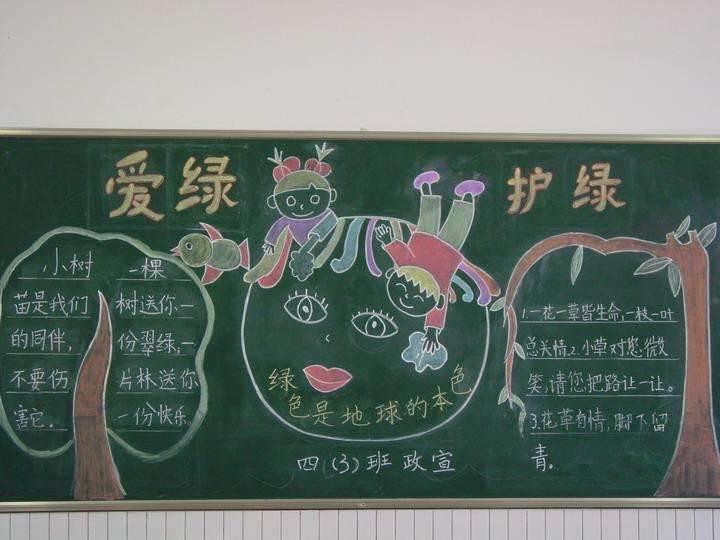 爱绿
护绿
小树
苗是我们
的同伴，
不要伤
害它。
一棵
树送你一
份翠绿，一
片林送你
一份快乐。
绿色是地球的本色
1.一花一草皆生命，一枝一叶
总关情2.小草对您微
笑，请您把路让一让。
3.花草有情，脚下留
青。
四(3)班政宣